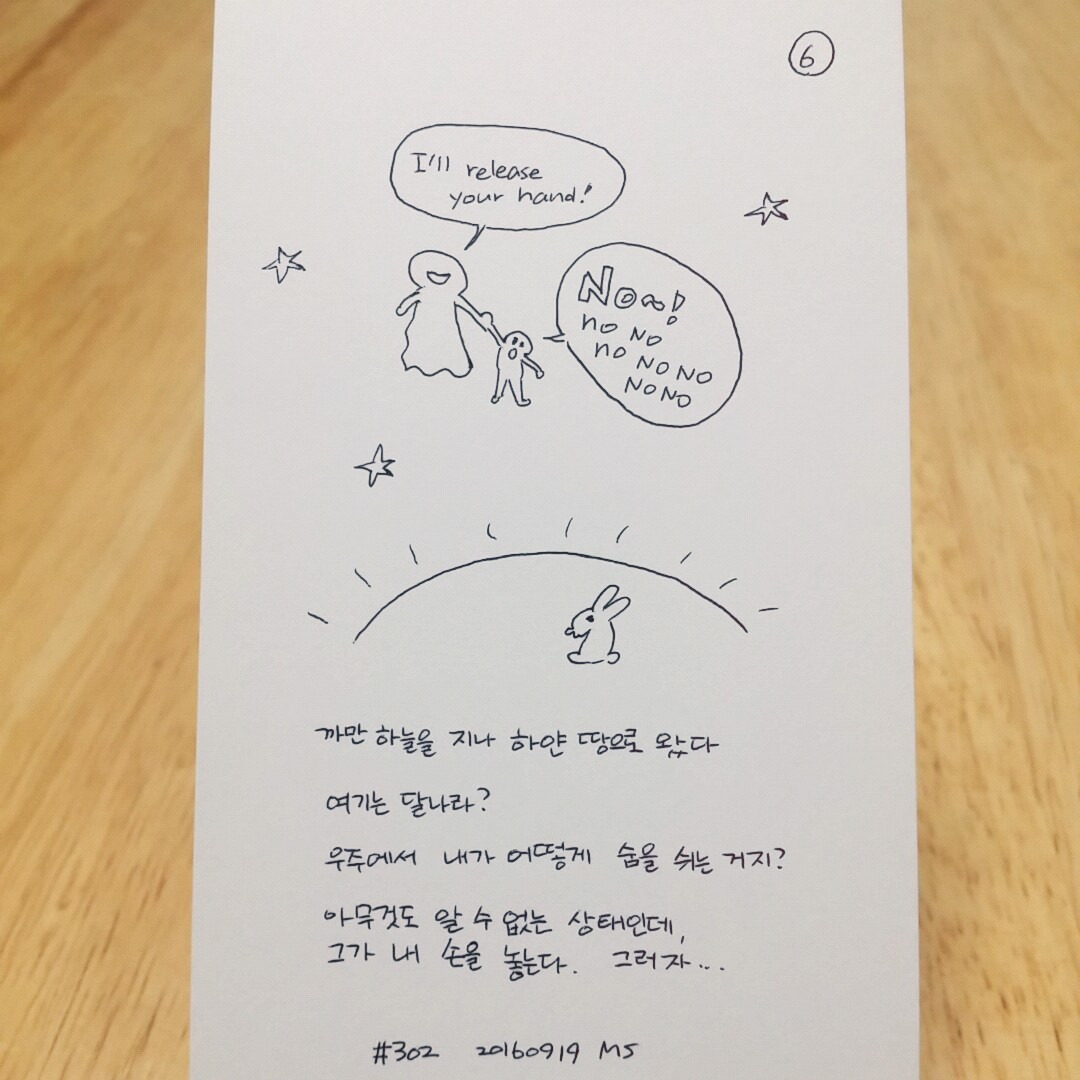 6
I'll release
your hand!
No~!
no No
no No No
No No
까만 하늘을 지나 하얀 땅으로 왔다
여기는 달나라?
우주에서 내가 어떻게 숨을 쉬는 거지?
아무것도 알 수 없는 상태인데,
그가 내 손을 놓는다. 그러자...
#302 20160919 MS